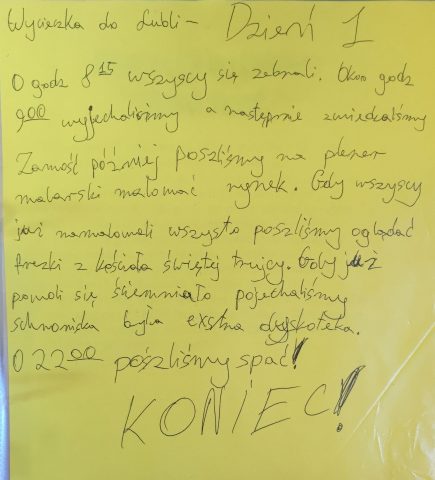 Wycieczka do Lubli- Dzień 1
O godz 8 15 wszyscy się zebrali. Okoo godz
9 00 wyjechaliśmy a następnie zwiedzaliśmy
Zamość później poszliśmy na plener
malarski malować rynek. Gdy wszyscy
już namalowali wszysto poszliśmy oglądać
frezki z kościoła świętej trujcy. Gdy już
pomoli się ściemniało pojechaliśmy
schroniska była exstra dyskoteka.
O 22 00 poszliśmy spać!
KONIEC!